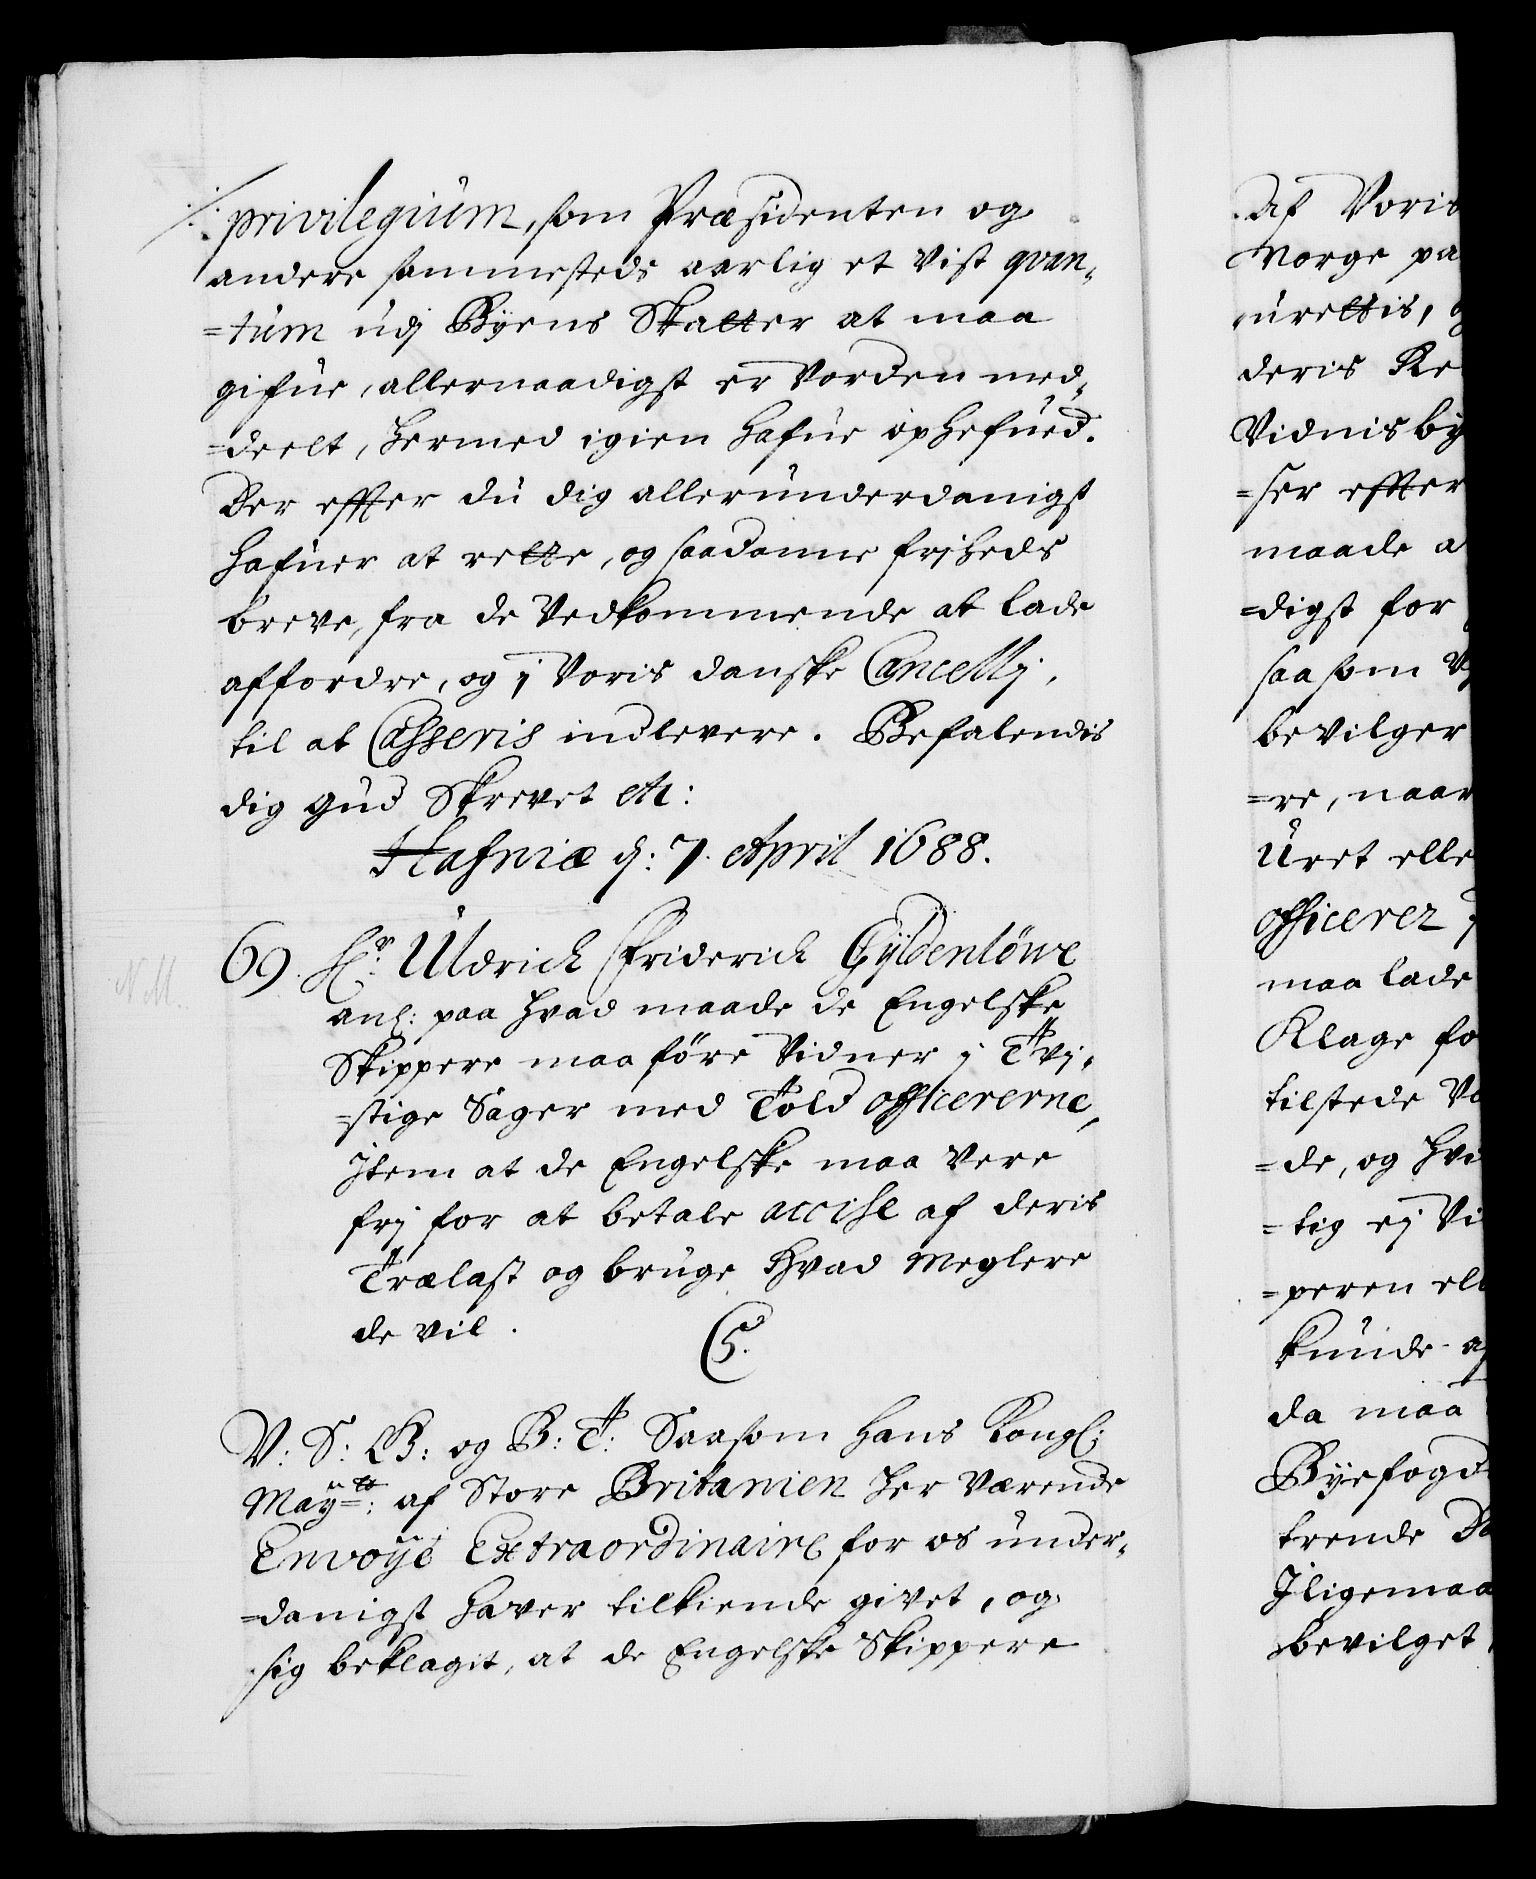 ·/. privilegium, som Præsidenten og
andere sammesteds aarlig et vist qvan-
=tum udj Byens Skatter at maa
gifue, allernaadigst er vorden med-
=deelt, hermed igien hafue ophefued.
Der effter du dig allerunderdanigst
hafuer at rette, og saadanne frjheds
breve, fra de Vedkommende at lade
affordre, og j Voris danske Cancellj,
til at Casseris indlevere. Befalendis
dig Gud Skrevet etc:
Hafniæ d: 7. April 1688.
69. Hr. Uldrich Friderich Gyldenlöwe
anl: paa hvad maade de Engelske
Skippere maa före Vidner j Tvj-
=stige Sager med Told officererne,
Item at de Engelske maa vere
frj for at betale accise af deris
Trælast og bruge hvad Meglere
de vil.
C5.
V: S: G: og B: T: Saasom hans Kongl:
Maytt: af Store Britanien her værende
Envoyé Extraordinaire for os under-
=danigst haver tilkiende givet, og
sig beklagit, at de Engelske Skippere
NM.
Af Voris
Norge pa
urettis,
deris Re
Vidnisby
=ser effter
maade a
=digst for
saasom V
bevilger
=re, naar
Uret elle
officerer
maa lade
Klage fo
tilstede Va
=de, og hvi
=tig ej Vi
=peren ell
kunde af
da maa
Byefogd
trende D
Iligemaa
bevilget